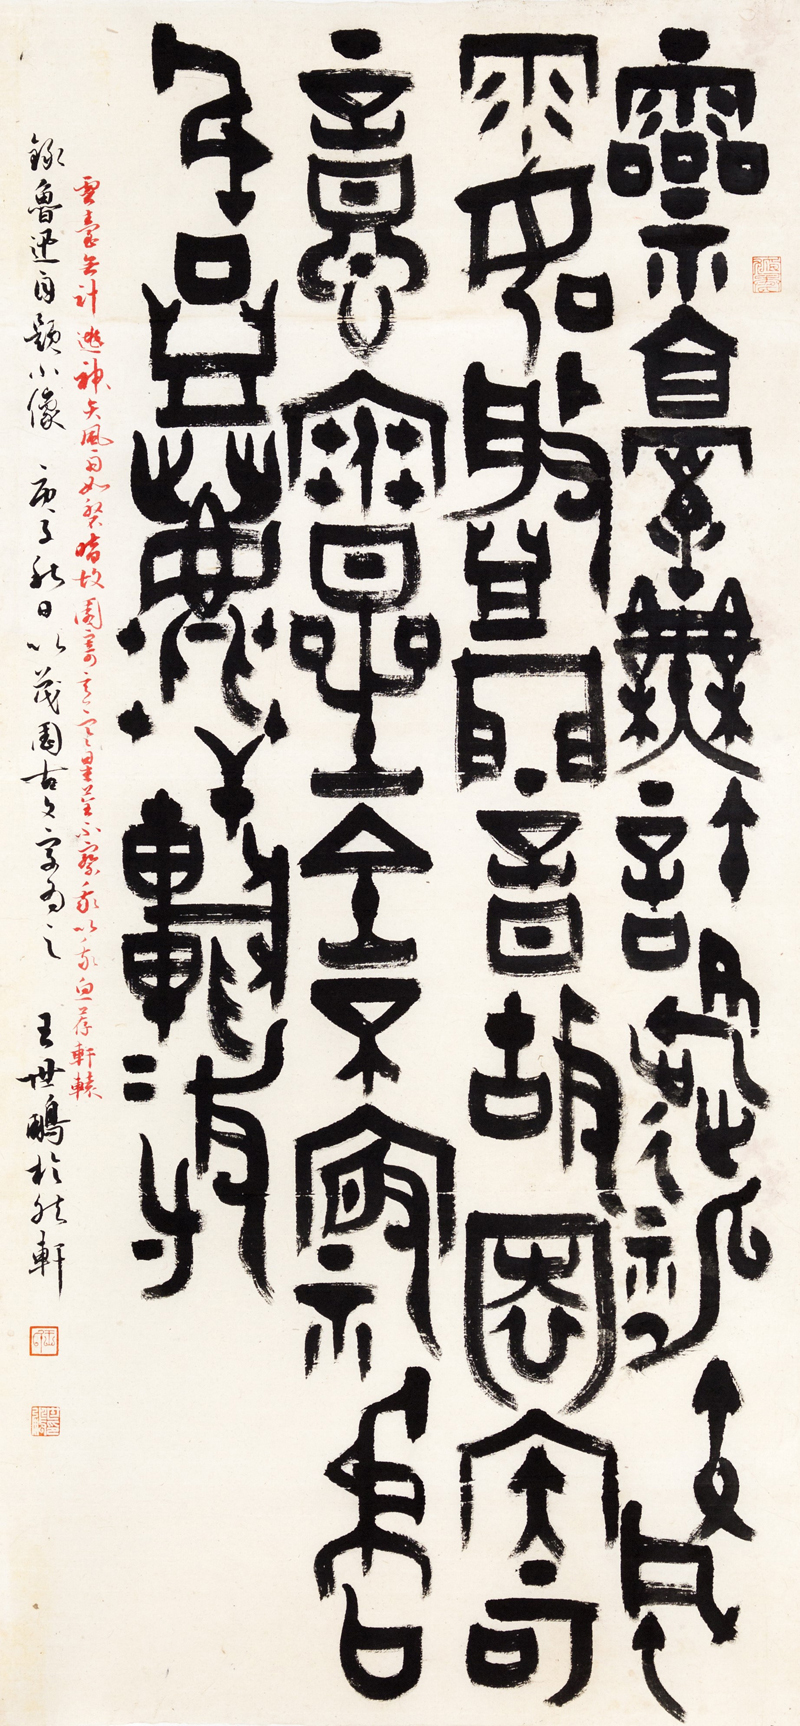 靈臺無計逃神矢風
雨如磐闇故園寄
意寒星荃不察我以
我血薦軒轅
靈臺無計逃神矢風雨如磐暗故園寄意寒星荃不察我以我血荐軒轅
錄魯迅自題小像 庚子秋日以茂園古文字為之 王世鵬於軒